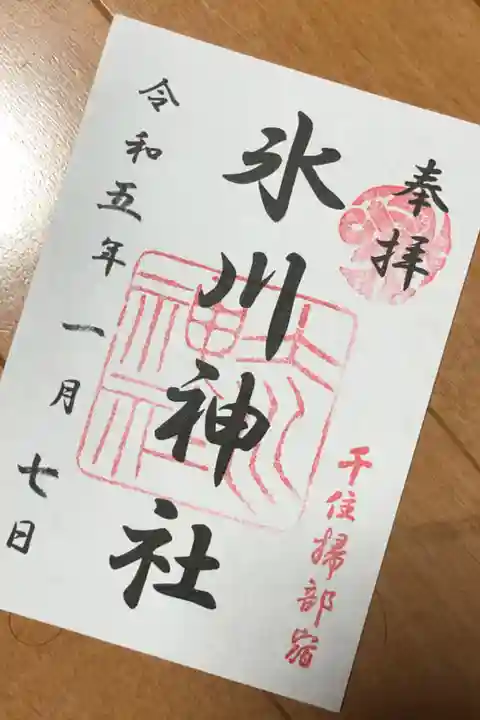 奉拝
千住掃部宿
氷川神社
令和五年一月七日